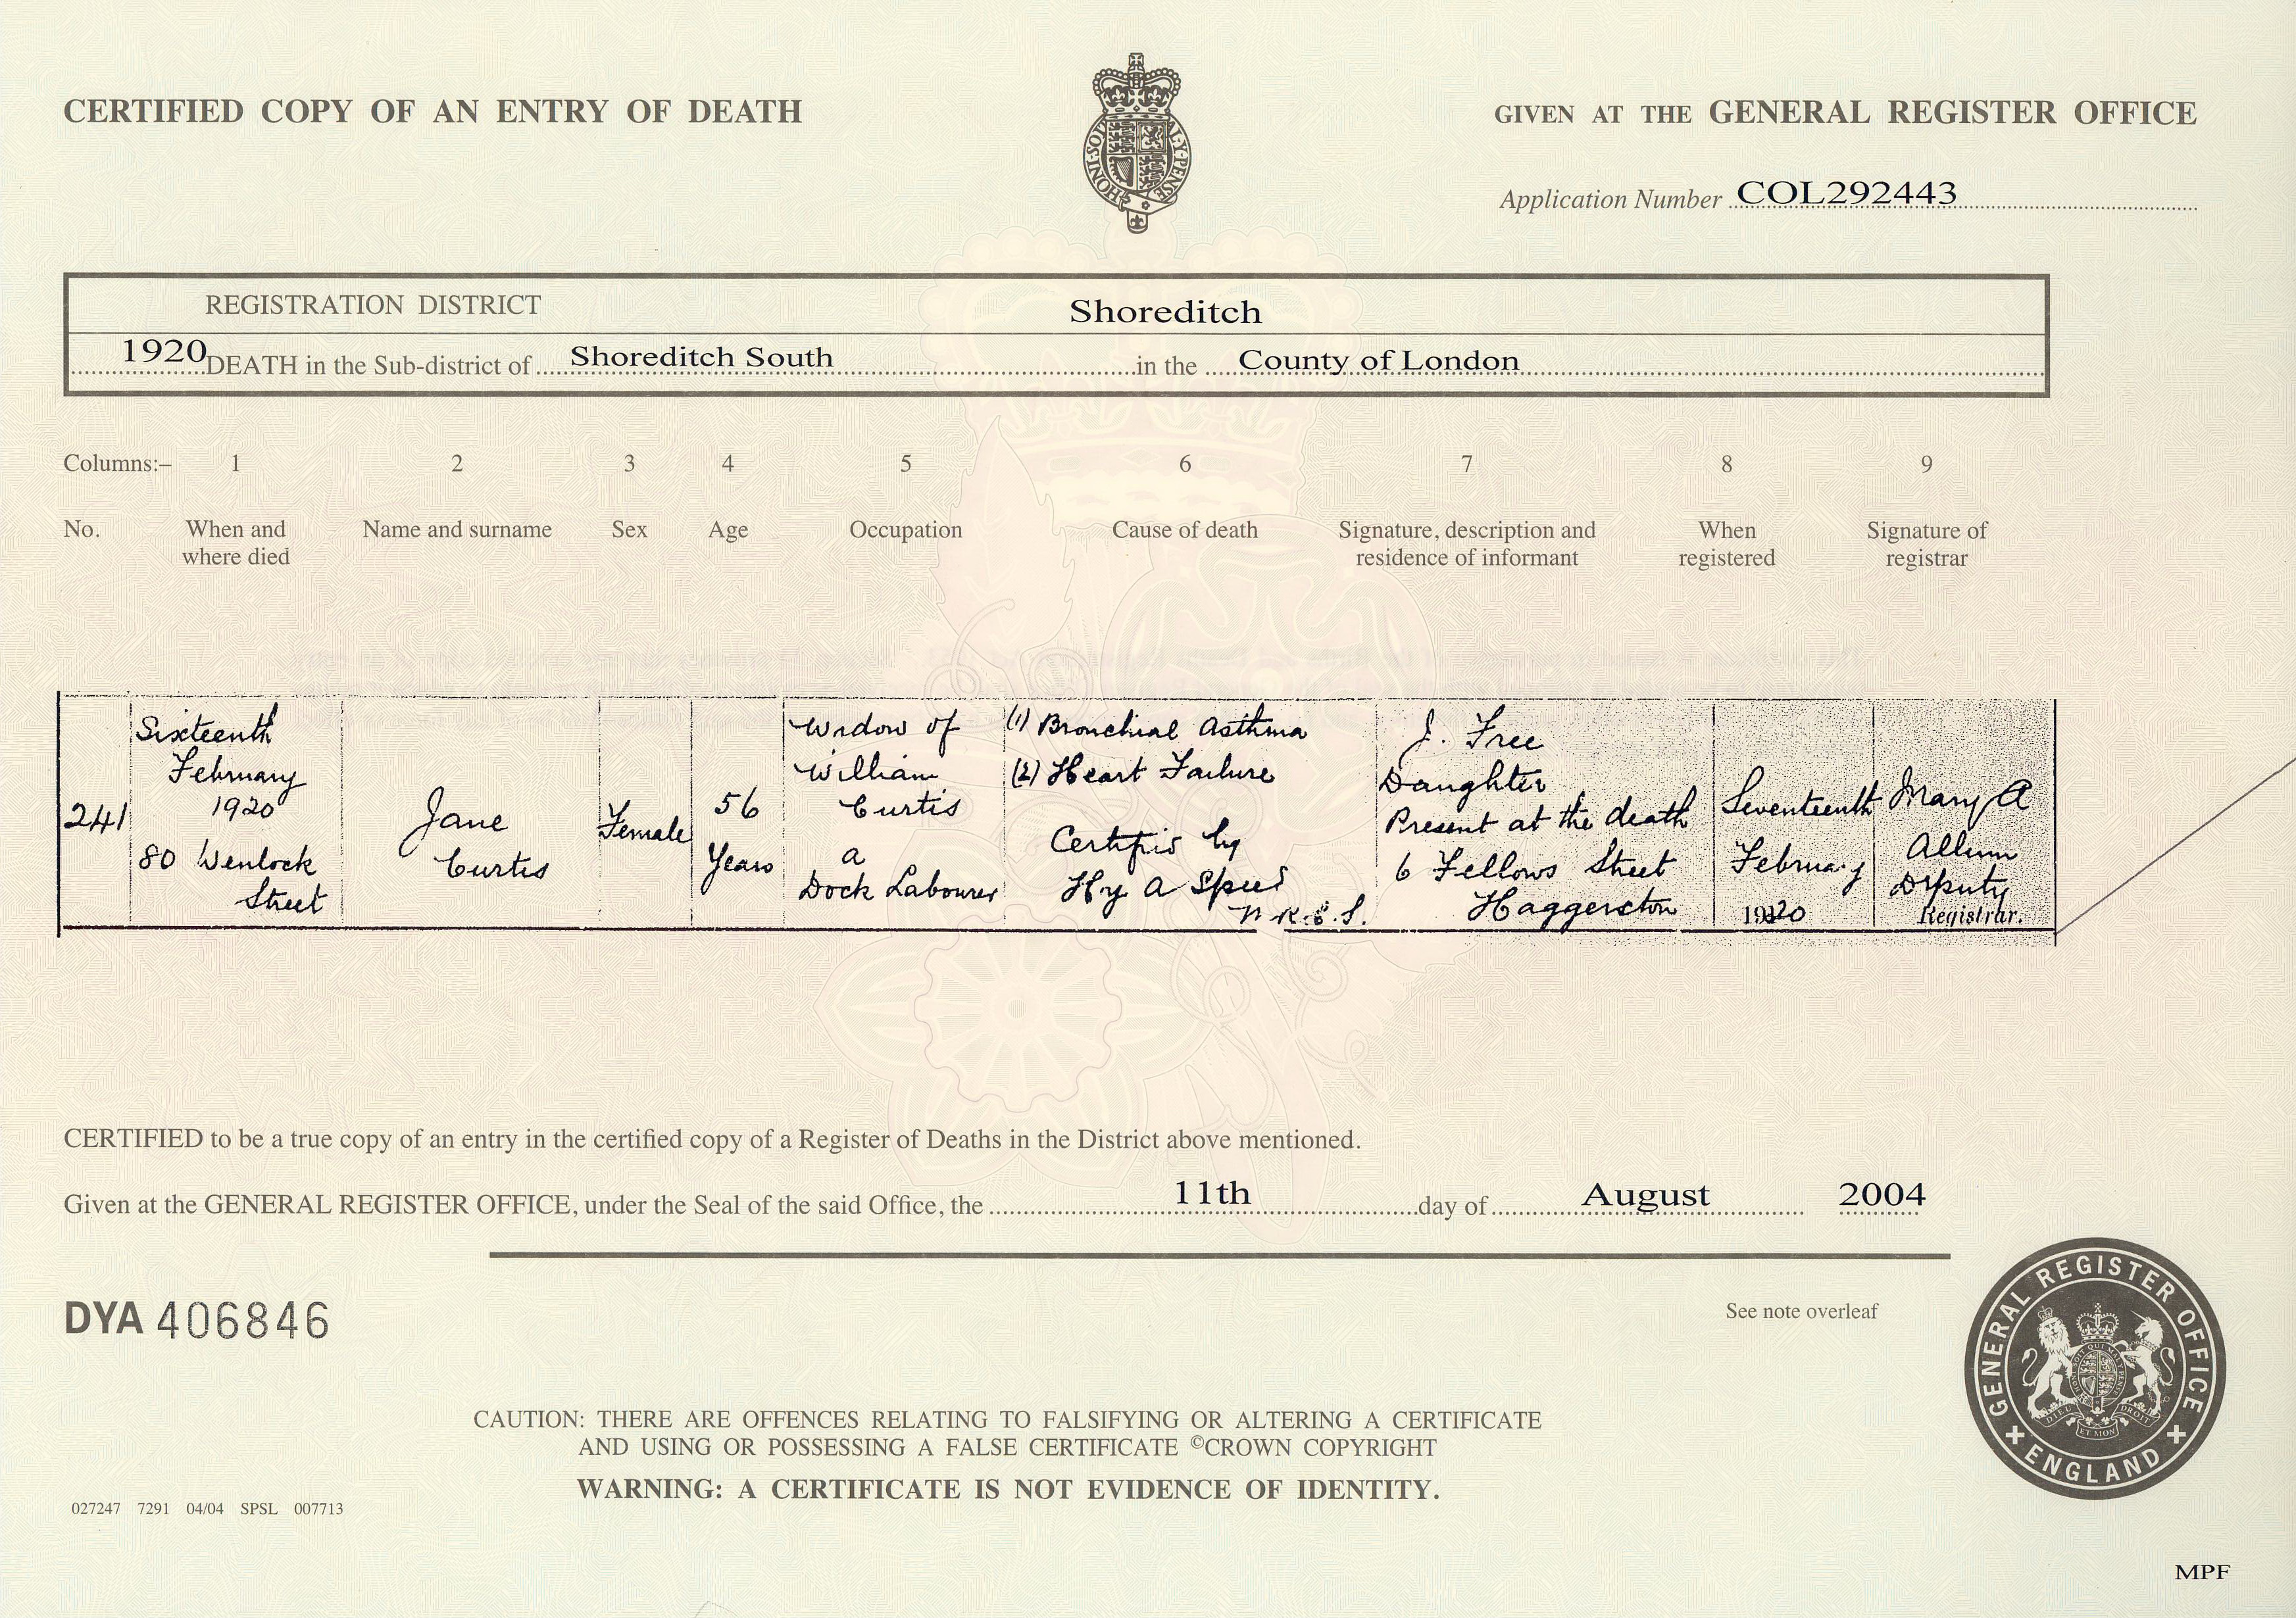 CERTIFIED COPY OF AN ENTRY OF DEATH
GIVEN AT THE GENERAL REGISTER OFFICE
HONI·SOIT Y·PENSE
Application Number COL292443
REGISTRATION DISTRICT Shoreditch
1920 DEATH in the Sub-district of Shoreditch South in the County of London
Columns:– 1 2 3 4 5 6 7 8 9
No. When and where died Name and surname Sex Age Occupation Cause of death Signature, description and residence of informant When registered Signature of registrar
241
Sixteenth
February
1920
80 Wenlock
Street
Jane
Curtis
Female
56
Years
Widow of
William
Curtis
a
Dock Labourer
(1) Bronchial Asthma
(2) Heart Failure
Certified by
Hy A
J. Free
Daughter
Present at the death
6 Fellows Street
Haggerston
Seventeenth
February
1920
Mary A
Allum
Deputy
Registrar.
CERTIFIED to be a true copy of an entry in the certified copy of a Register of Deaths in the District above mentioned.
Given at the GENERAL REGISTER OFFICE, under the Seal of the said Office, the 11th day of August 2004
DYA 406846
See note overleaf
GENERAL REGISTER OFFICE
DIEU ET MON DROIT
ENGLAND
CAUTION: THERE ARE OFFENCES RELATING TO FALSIFYING OR ALTERING A CERTIFICATE
AND USING OR POSSESSING A FALSE CERTIFICATE ©CROWN COPYRIGHT
WARNING: A CERTIFICATE IS NOT EVIDENCE OF IDENTITY.
027247 7291 04/04 SPSL 007713
MPF